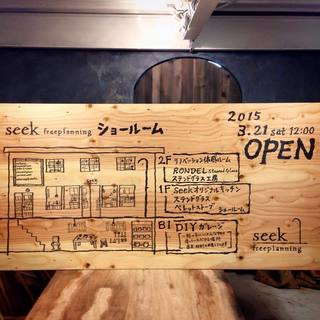 seek freeplanning ショールーム
2015
3.21 sat 12:00
OPEN
2F リノベーション体感ルーム
RONDEL Stained Glass
ステンドグラス工房
1F Seekオリジナルキッチン
ステンドグラス
ペレットストーブ ショールーム
B1 DIYガレージ
seek
freeplanning